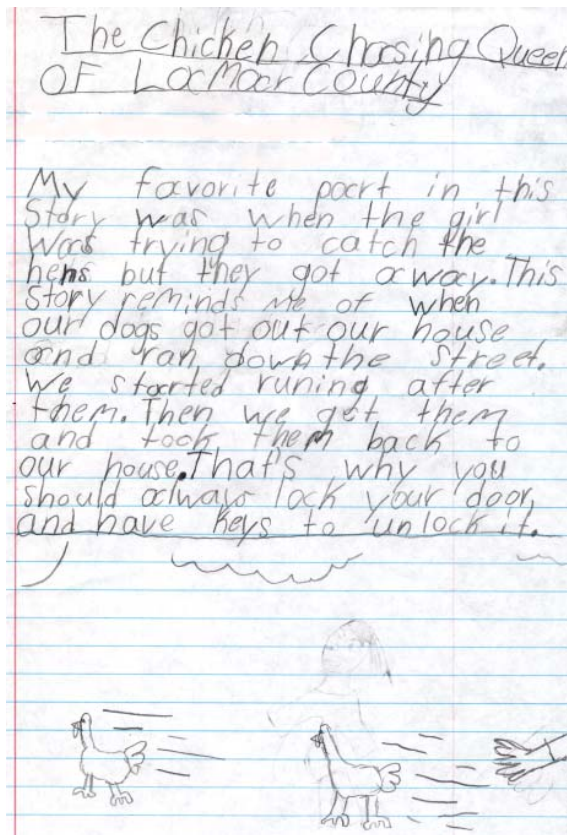 The Chicken Chasing Queen
OF Lacmaar County
My favorite part in this
Story was when the girl
was trying to catch the
hens but they got away. This
Story reminds me of when
our dogs got out our house
and ran down the street.
We started runing after
them. Then we get them
and took them back to
our house. That's why you
should always lock your door,
and have keys to unlock it.